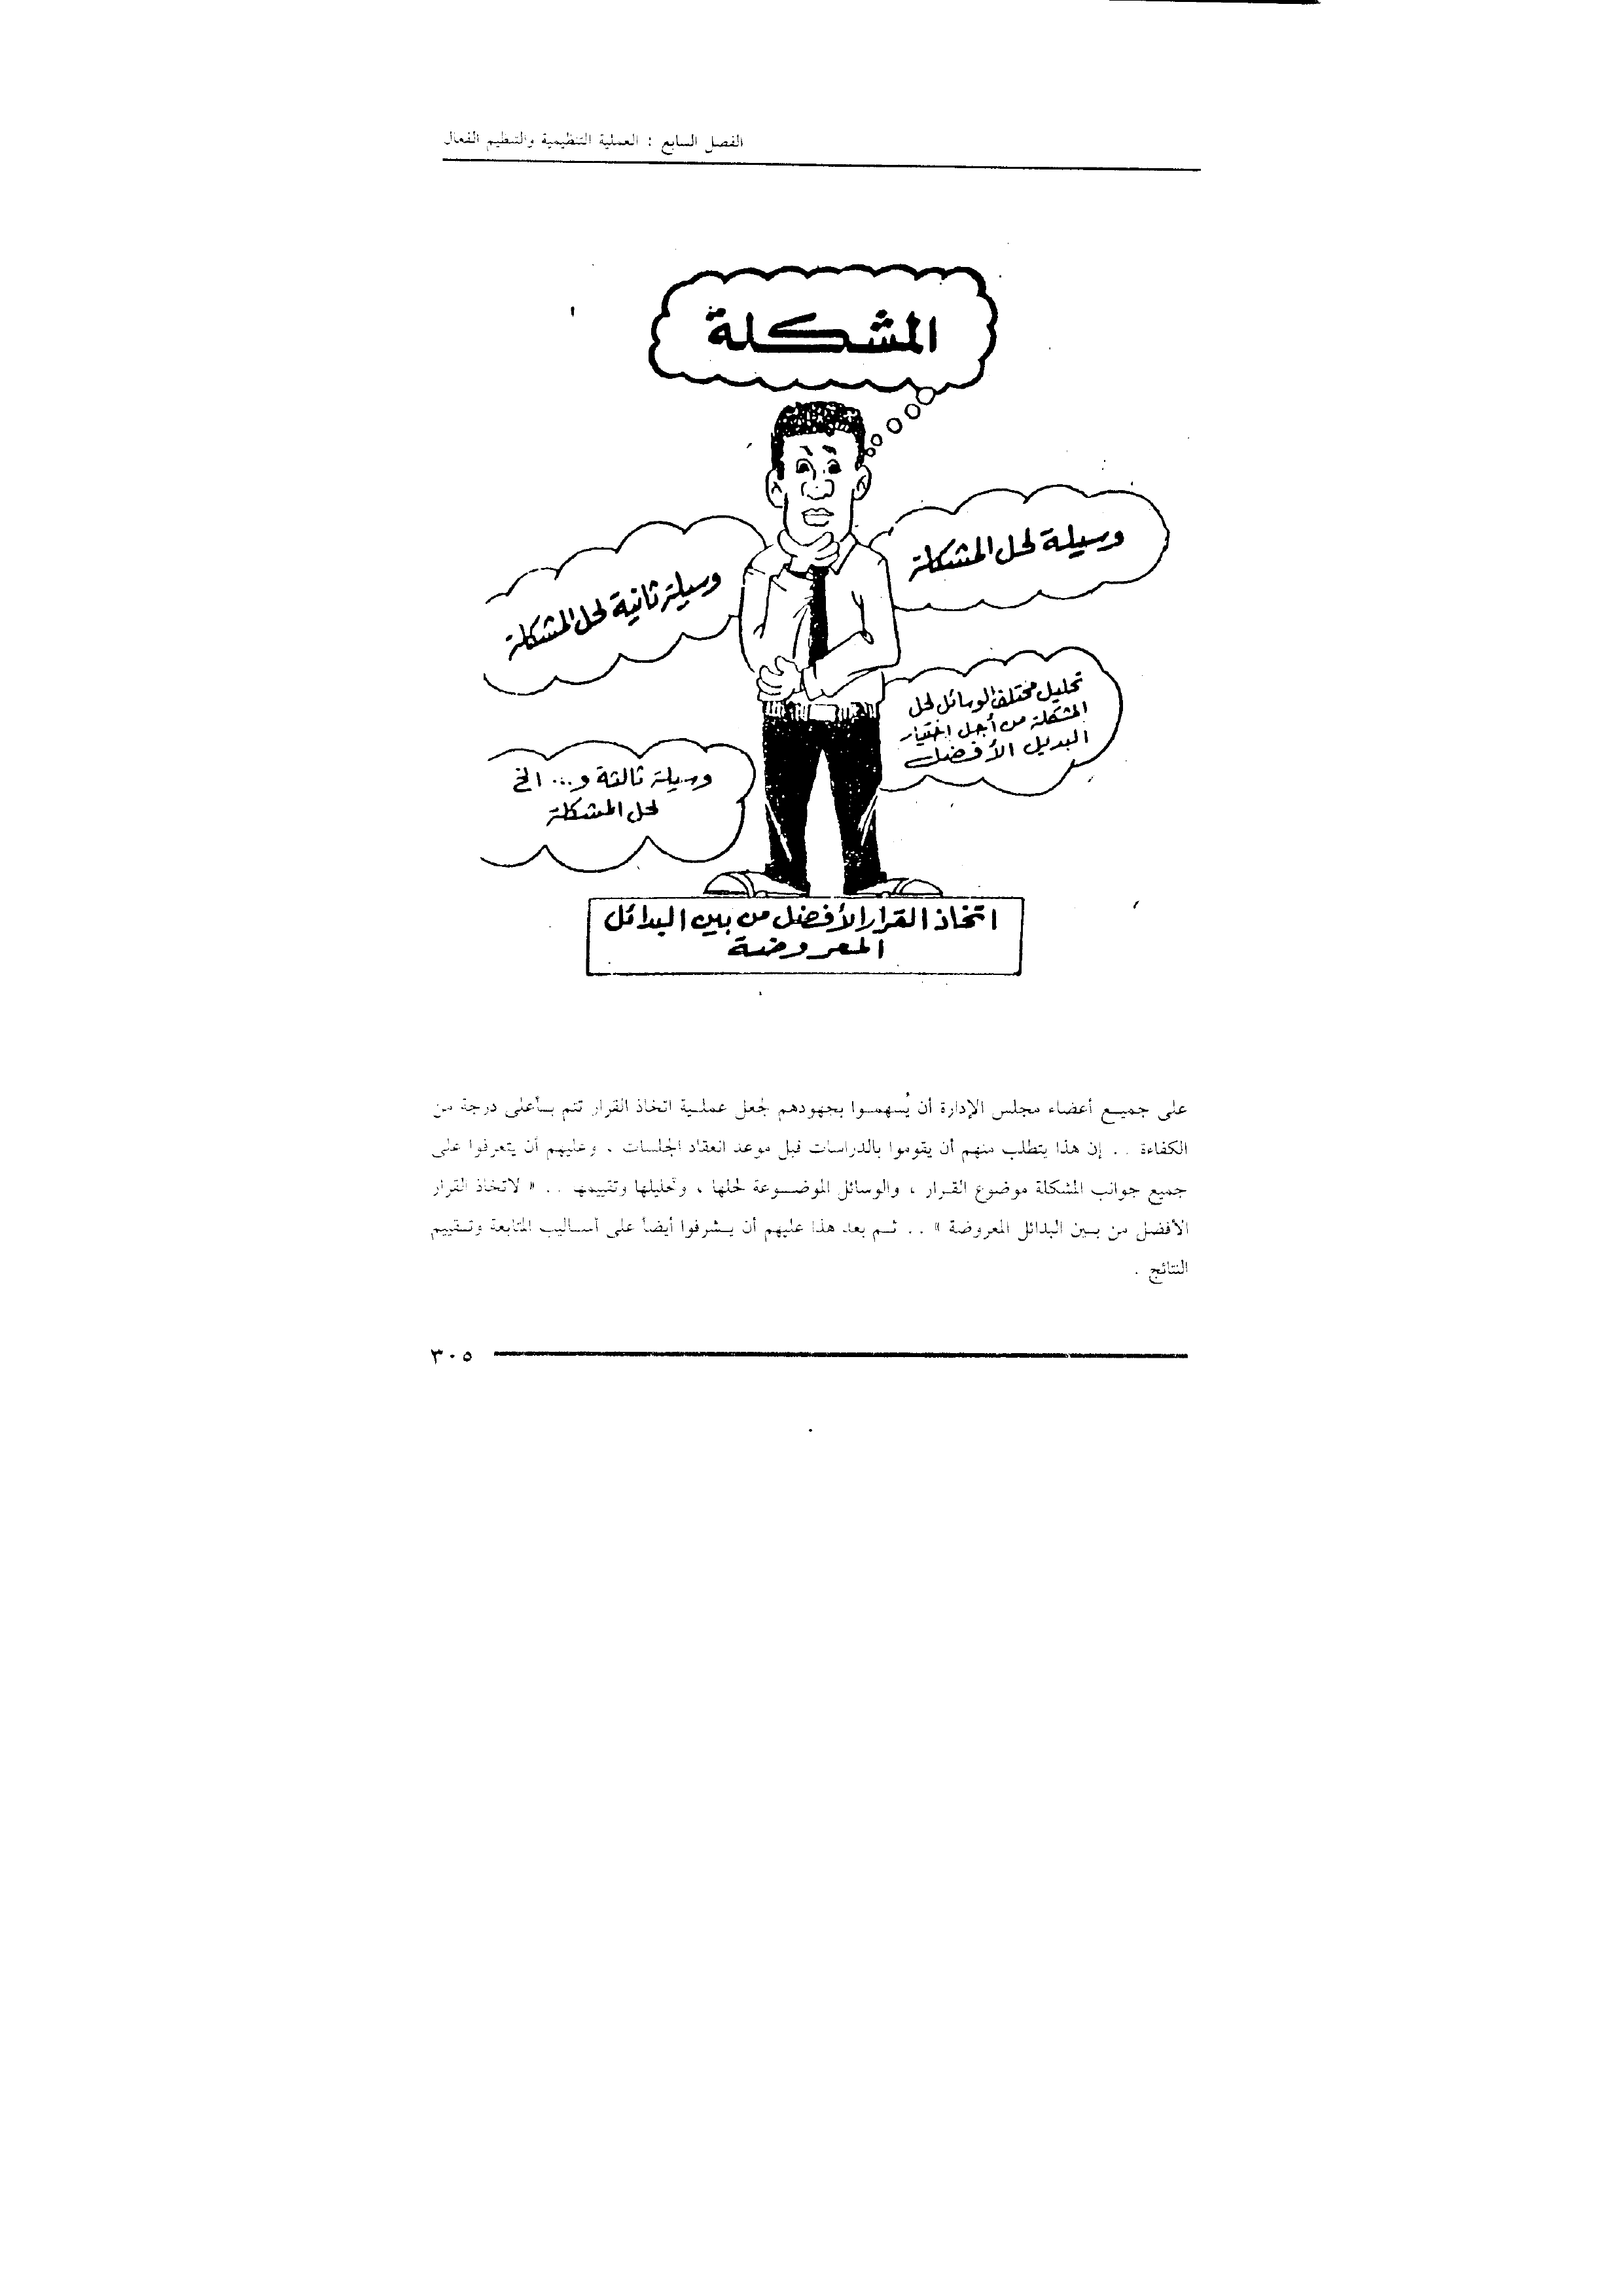 الفصل السابع : العملية التنظيمية والتنظيم الفعال
المشكلة
وسيلة لحل المشكلة
وسيلة ثانية لحل المشكلة
تحليل مختلف الوسائل لحل
المشكلة من أجل اختيار
البديل الأفضل
وسيلة ثالثة و... الخ
لحل المشكلة
اتخاذ القرار الأفضل من بين البدائل
المعروضة
على جميع أعضاء مجلس الإدارة أن يُسهموا بجهودهم لجعل عملية اتخاذ القرار تتم بأعلى درجة من
الكفاءة .. إن هذا يتطلب منهم أن يقوموا بالدراسات قبل موعد انعقاد الجلسات . وعليهم أن يتعرفوا على
جميع جوانب المشكلة موضوع القرار ، والوسائل الموضوعة لحلها ، وتحليلها وتقييمها .. « لاتخاذ القرار
الأفضل من بين البدائل المعروضة » .. ثم بعد هذا عليهم أن يشرفوا أيضاً على أساليب المتابعة وتقييم
النتائج .
٣٠٥